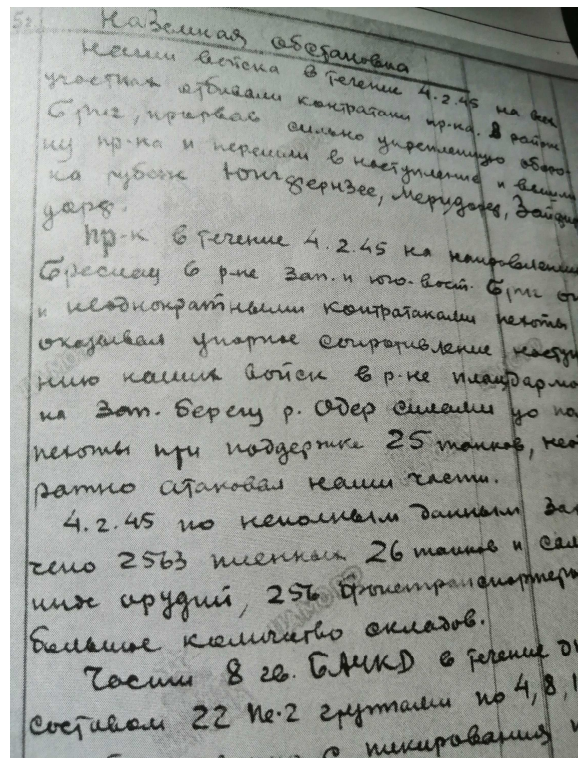 Наземная обстановка
Наши войска в течение 4.2.45 на всех
участках отбивали контратаки пр-ка. В районе
Бриг, прорвав сильно укрепленную оборо-
ну пр-ка и перешли в наступление и вышли
на рубеж Юнгфернзее,
дорф.
Пр-к в течение 4.2.45 на направлении
Бреслау в р-не Зап. и юго-вост. Бриг
и неоднократными контратаками пехоты
оказывал упорное сопротивление наступ
нию наших войск в р-не плацдарма
на Зап. берегу р. Одер силами до
пехоты при поддержке 25 танков,
ратно атаковал наши части.
4.2.45 по неполным данным за
чено 2563 пленных 26 танков и сам
ных орудий, 256 бронетранспортеров
большое количество складов.
Части 8 гв. БАЧКД в течение
составом 22 Пе-2 группами по 4, 8, 1
с пикирования